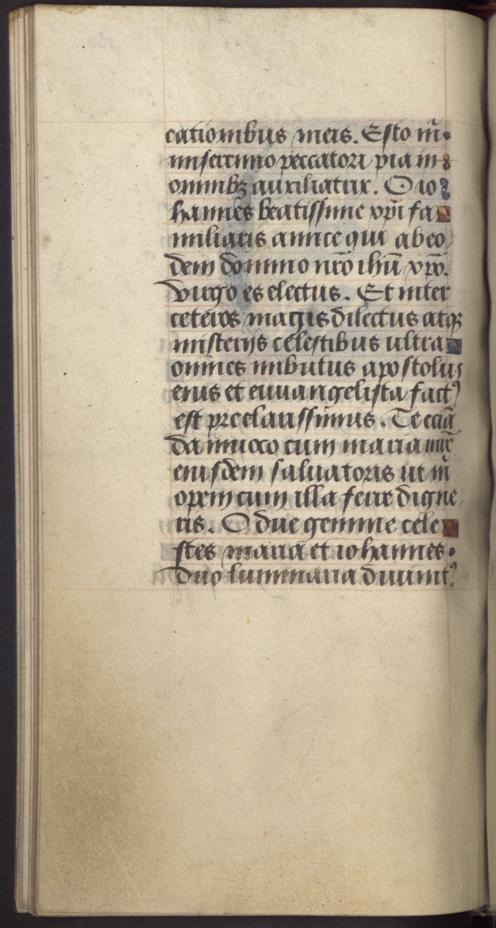 cationibus meis. Esto m̄
miserrimo peccatori pia in
omnibꝫ auxiliatrix. O io
hannes beatissime xp̄i fa
miliaris amice qui ab eo
dem domino nr̄o ihū xp̄o.
virgo es electus. Et inter
ceteros magis dilectus atqꝫ
misterijs celestibus ultra
omnes imbutus apostolus
enis et euuangelista fact⁹
est preclarissimus. Te eciā
da inuoco cum maria mr̄e
eiusdem saluatoris ut m̄
opem cum illa ferre digne
ris. O due gemme cele
stes maria et iohannes.
Duo luminaria diuinit⁹